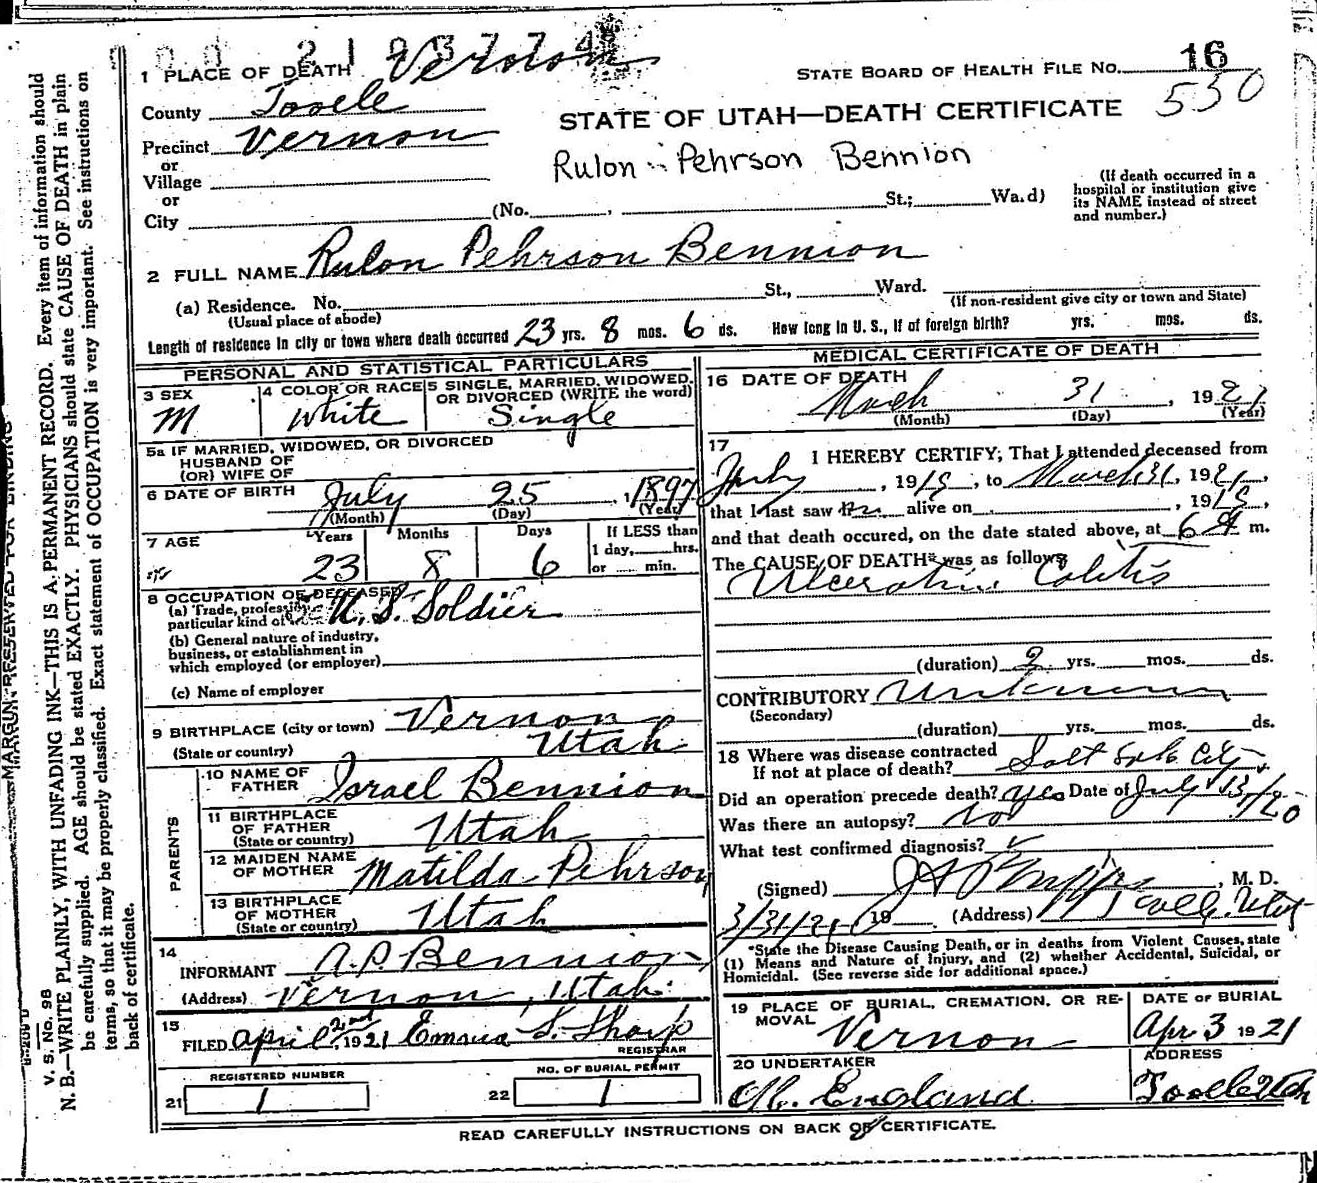 Vernon
16
1 PLACE OF DEATH
STATE BOARD OF HEALTH FILE No.
530
County Tooele
STATE OF UTAH—DEATH CERTIFICATE
Precinct Vernon
Rulon Pehrson Bennion
or
Village
or
City (No. , St.; Wa.d)
(If death occurred in a hospital or institution give its NAME instead of street and number.)
2 FULL NAME Rulon Pehrson Bennion
(a) Residence. No. St., Ward.
(Usual place of abode)
(If non-resident give city or town and State)
Length of residence in city or town where death occurred 23 yrs. 8 mos. 6 ds. How long in U. S., if of foreign birth? yrs. mos. ds.
PERSONAL AND STATISTICAL PARTICULARS
3 SEX
M
4 COLOR OR RACE
White
5 SINGLE, MARRIED, WIDOWED, OR DIVORCED (WRITE the word)
Single
5a IF MARRIED, WIDOWED, OR DIVORCED
HUSBAND OF
(OR) WIFE OF
6 DATE OF BIRTH July 25, 1897
(Month) (Day) (Year)
7 AGE
Years Months Days
23 8 6
If LESS than
1 day, hrs.
or min.
8 OCCUPATION OF DECEASED
(a) Trade, profession
particular kind of U. S. Soldier
(b) General nature of industry,
business, or establishment in
which employed (or employer)
(c) Name of employer
9 BIRTHPLACE (city or town) Vernon
(State or country) Utah
PARENTS
10 NAME OF FATHER Israel Bennion
11 BIRTHPLACE OF FATHER (State or country) Utah
12 MAIDEN NAME OF MOTHER Matilda Pehrson
13 BIRTHPLACE OF MOTHER (State or country) Utah
14
INFORMANT A.P. Bennion
(Address) Vernon, Utah
15
FILED April 2nd, 1921 Emma S. Sharp
REGISTRAR
REGISTERED NUMBER
21 1
NO. OF BURIAL PERMIT
22 1
MEDICAL CERTIFICATE OF DEATH
16 DATE OF DEATH
March 31, 1921
(Month) (Day) (Year)
17
I HEREBY CERTIFY; That I attended deceased from
July, 19 , to March 31, 1921,
that I last saw him alive on , 19 ,
and that death occured, on the date stated above, at 6 m.
The CAUSE OF DEATH* was as follows
Ulcerative Colitis
(duration) 2 yrs. mos. ds.
CONTRIBUTORY Unknown
(Secondary)
(duration) yrs. mos. ds.
18 Where was disease contracted
If not at place of death? Salt Lake City
Did an operation precede death? yes Date of July 13/20
Was there an autopsy? No
What test confirmed diagnosis?
(Signed) , M. D.
3/31/21, 19 (Address) Tooele, Utah
*State the Disease Causing Death, or in deaths from Violent Causes, state
(1) Means and Nature of Injury, and (2) whether Accidental, Suicidal, or
Homicidal. (See reverse side for additional space.)
19 PLACE OF BURIAL, CREMATION, OR REMOVAL
Vernon
DATE OF BURIAL
Apr 3 1921
20 UNDERTAKER
England
ADDRESS
Tooele Utah
READ CAREFULLY INSTRUCTIONS ON BACK OF CERTIFICATE.
MARGIN RESERVED FOR BINDING
V. S. No. 98
N. B.—WRITE PLAINLY, WITH UNFADING INK—THIS IS A PERMANENT RECORD. Every item of information should
be carefully supplied. AGE should be stated EXACTLY. PHYSICIANS should state CAUSE OF DEATH in plain
terms, so it may be properly classified. Exact statement of OCCUPATION is very important. See instructions on
back of certificate.